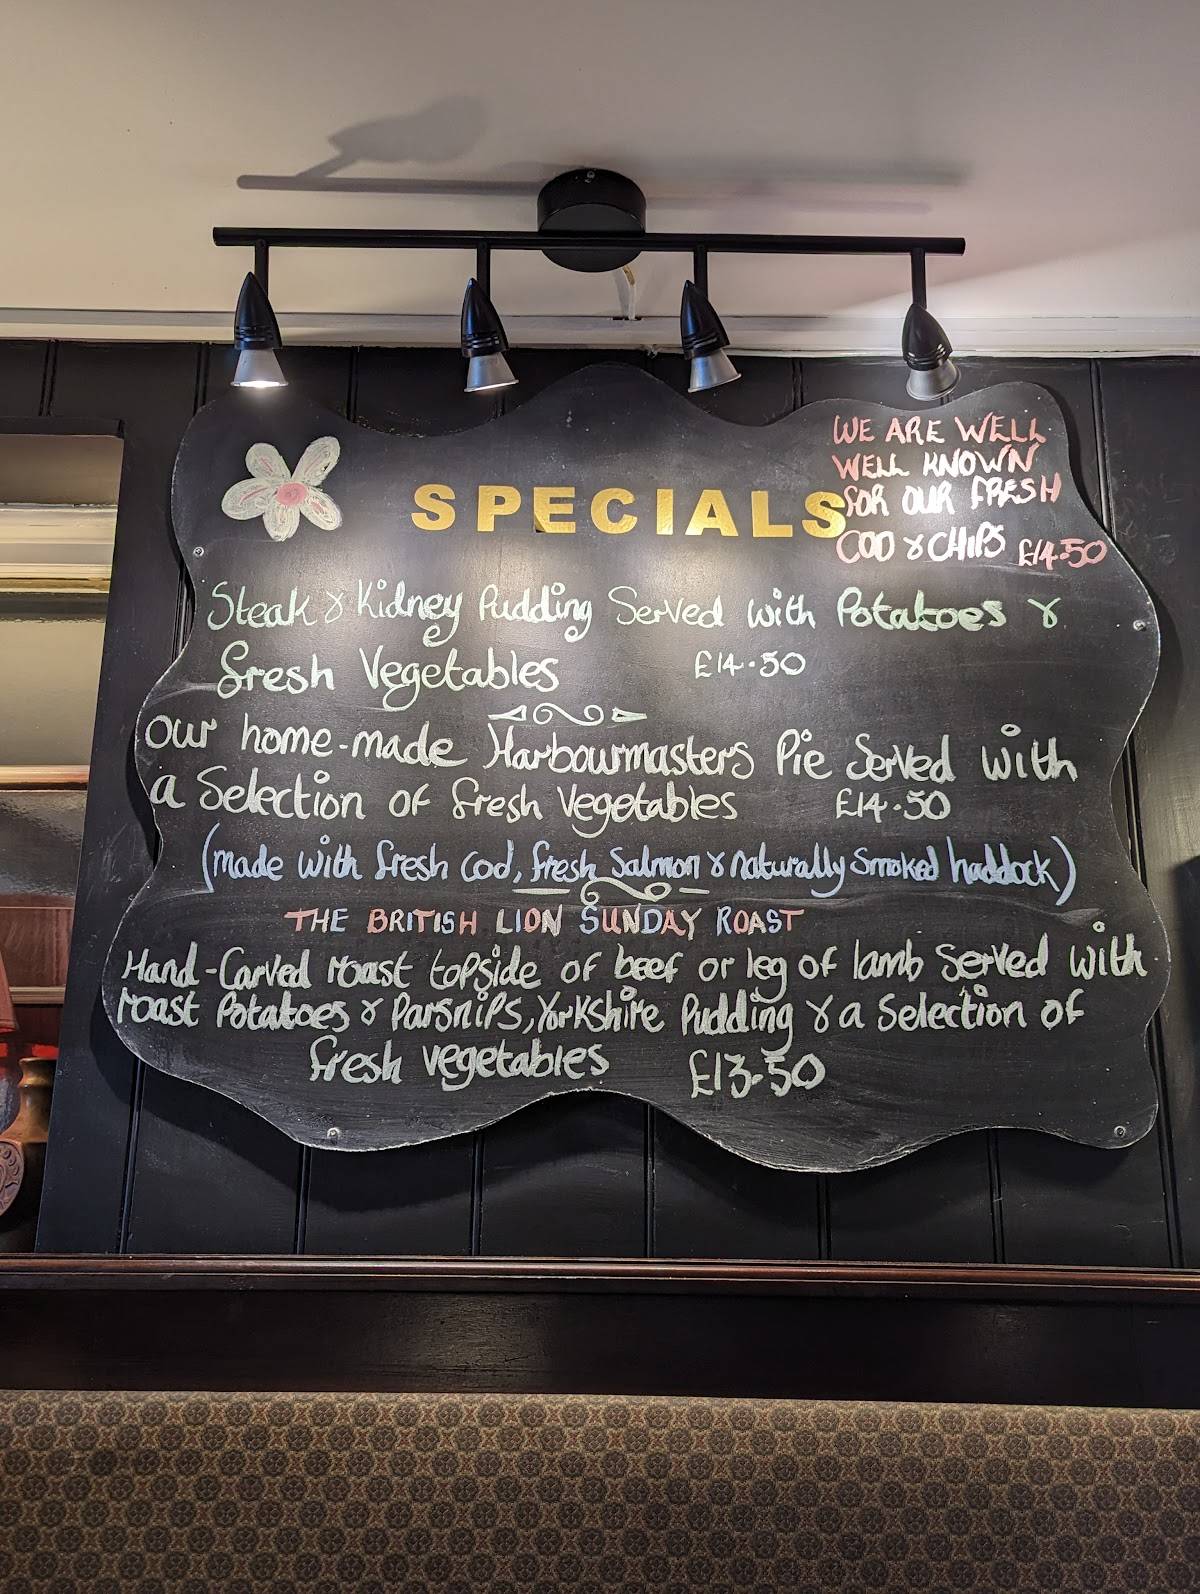 SPECIALS
WE ARE WELL
WELL KNOWN
FOR OUR FRESH
COD & CHIPS £14.50
Steak & Kidney Pudding Served with Potatoes &
fresh Vegetables £14.50
our home-made Harbourmasters Pie Served with
a Selection of fresh Vegetables £14.50
(made with fresh cod, fresh Salmon & naturally Smoked haddock)
THE BRITISH LION SUNDAY ROAST
Hand-Carved roast topside of beef or leg of lamb Served with
roast Potatoes & Parsnips, Yorkshire Pudding & a Selection of
fresh vegetables £13.50